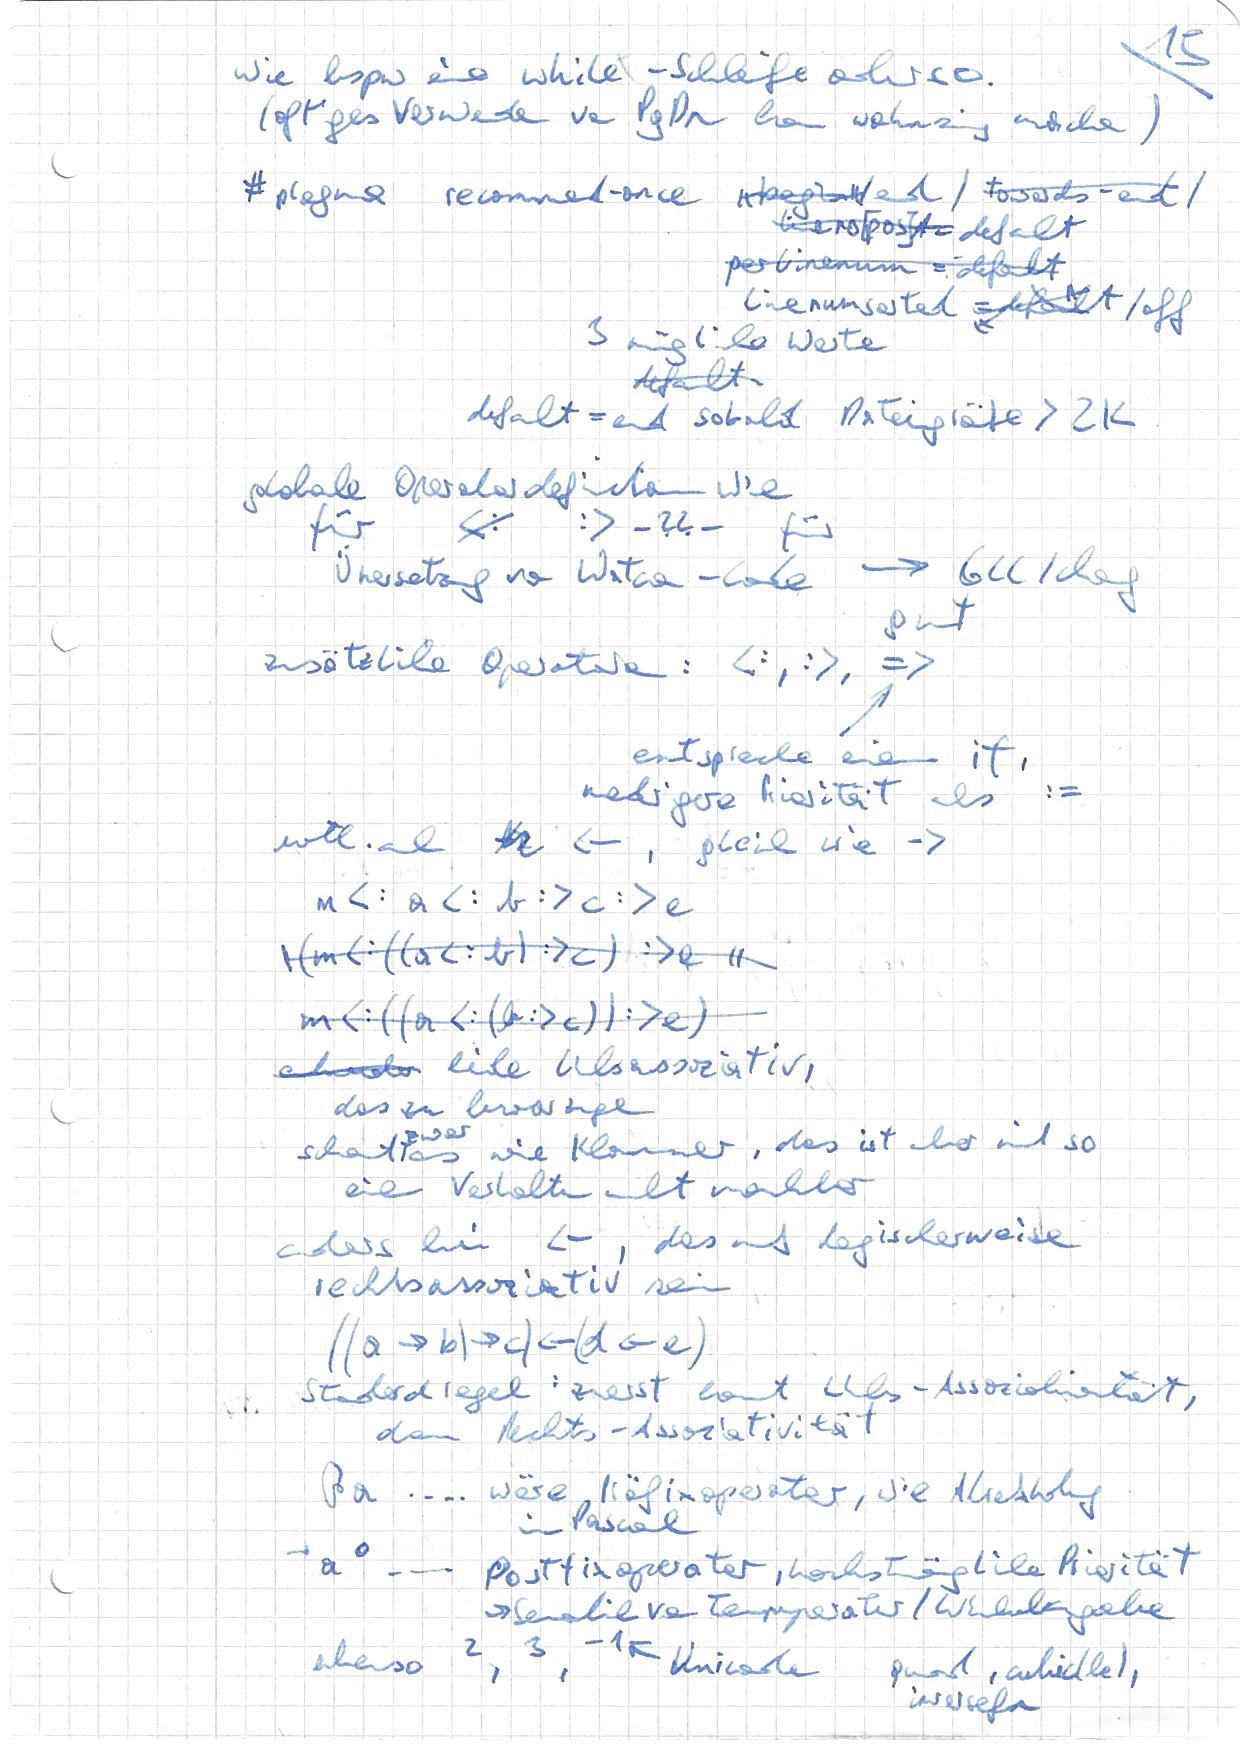 15
wie bspw eine while-Schleife oder so.
(oft ges Verwende von PgDn kann wahnsinnig mache)
#pragma recommend-once begin/end / towards-end /
lineno[pos]= default
per linenum = default
linenumsorted = default /off
3 mögliche Werte
default
default = end sobald Dateigröße > 2K
globale Operatordefinition wie
für <: :> -??- für
Übersetzung von Watcom-Code → GCC/clang
gut
zusätzliche Operatoren: <:, :>, =>
entspreche einem if,
niedrigere Priorität als :=
evtl. auch <-, gleich wie ->
m <: a <: b :> c :> e
(m<:((a<:b) :>c) :>e
m<:((a<:(b:>c)):>e)
beide linksassoziativ,
das zu
schaut zwar aus wie Klammer, das ist aber mit so
ein Verhalten nicht machbar
anders bei <-, das muß logischerweise
rechtsassoziativ sein
((a → b) → c) ← (d ← e)
Standardregel: zuerst kommt Links-Assoziativität,
dann Rechts-Assoziativität
a .... wäre Präfixoperator, wie Ableitung
in Pascal
a° .... Postfixoperator, höchstmögliche Priorität
→ Temperatur/Winkelangabe
ebenso ², ³, ⁻¹ Unicode quad, cubic,